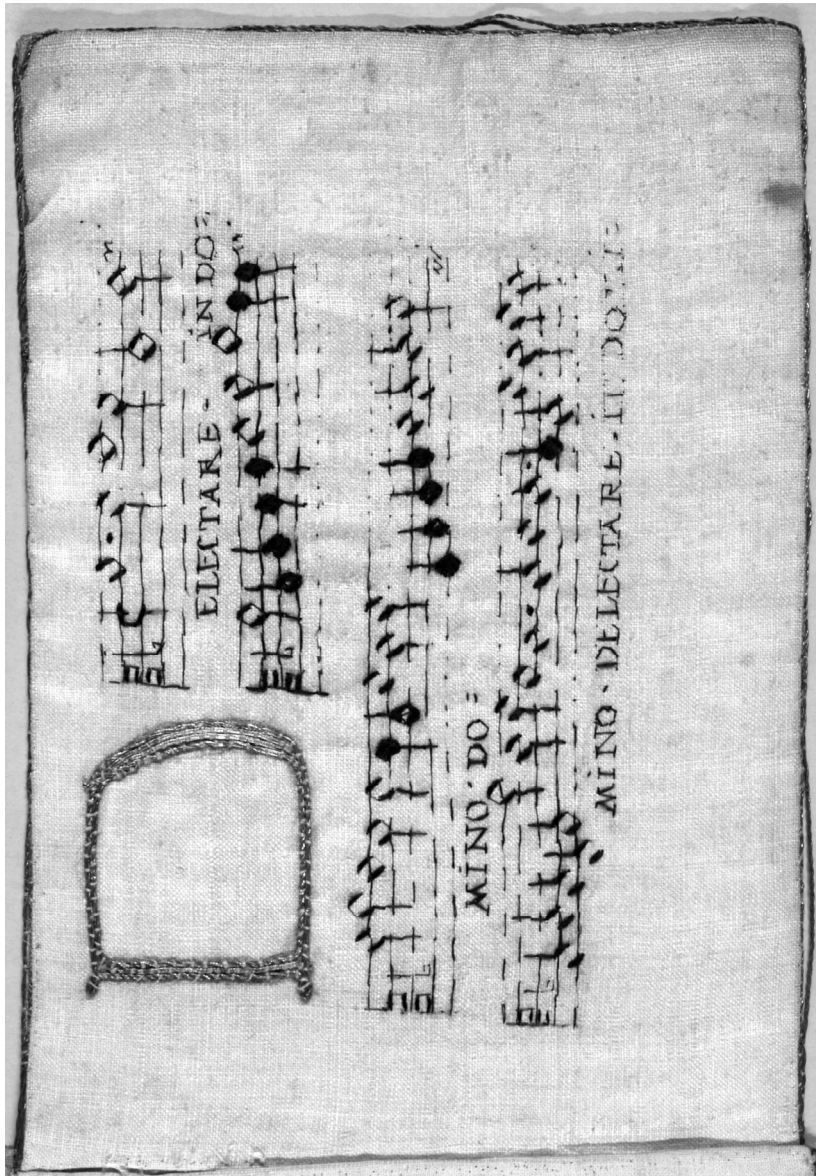 D
ELECTARE · IN DO=
MINO · DO=
MINO · DELECTARE · IN DOMI=